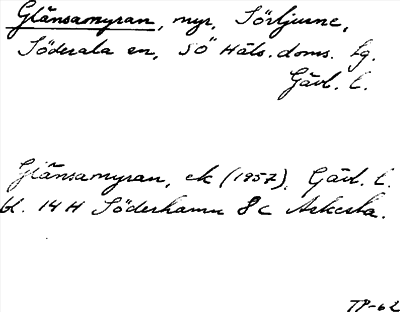 Glänsamyran, myr, Sörljusne,
Söderala sn, SÖ Häls. doms. tg.
Gävl. l.
Glänsamyran, ek (1957), Gävl. l.
bl. 14 H Söderhamn 8 c Askesta.
TP-62